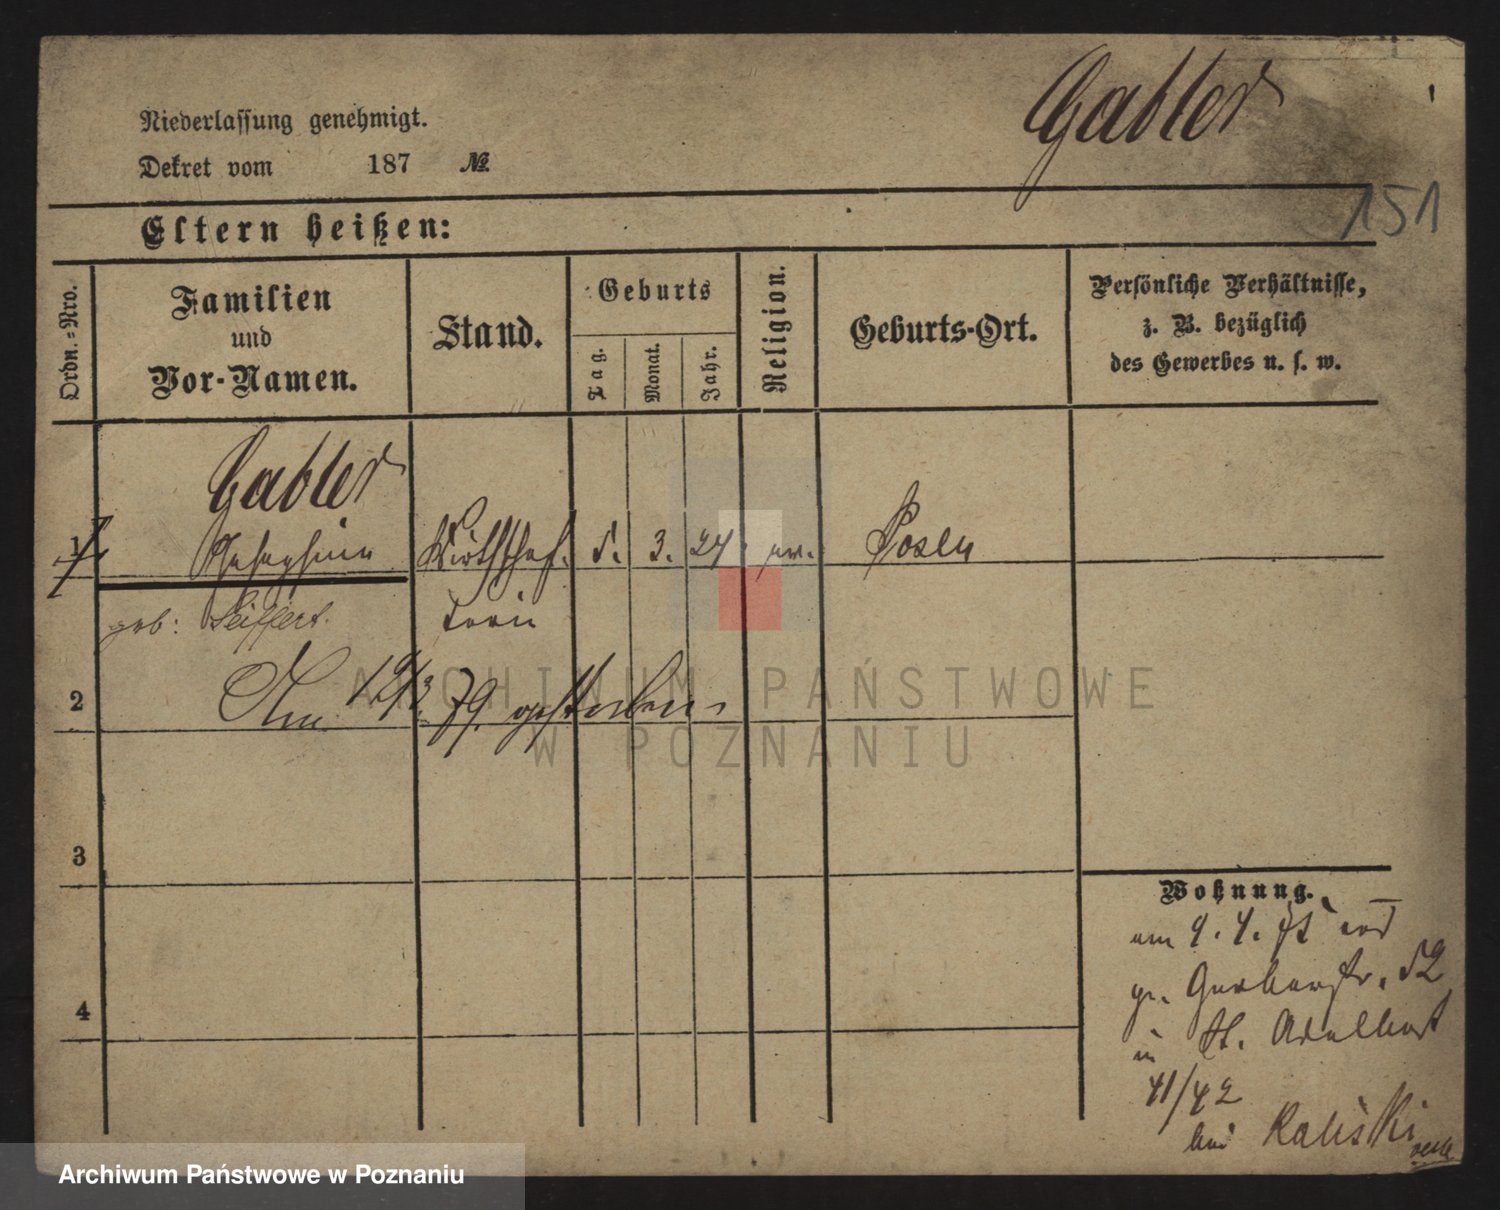 Gabler
Niederlassung genehmigt.
Dekret vom 187 №
151
Eltern heißen:
Ordn.-Nro.
Familien
und
Vor-Namen.
Stand.
Geburts
Tag.
Monat.
Jahr.
Religion.
Geburts-Ort.
Persönliche Verhältnisse,
z. B. bezüglich
des Gewerbes u. s. w.
Gabler
1 Josephine Wirthschaf- 5. 3. 24 ev. Posen
geb: Seiffert. terin
2 Am 12/3 79. gestorben
3
4
Wohnung.
am 9. 4. 75 von
gr. Gerberstr. 52
in St. Adalbert
41/42
bei Kaliski
ARCHIWUM PAŃSTWOWE
W POZNANIU
Archiwum Państwowe w Poznaniu